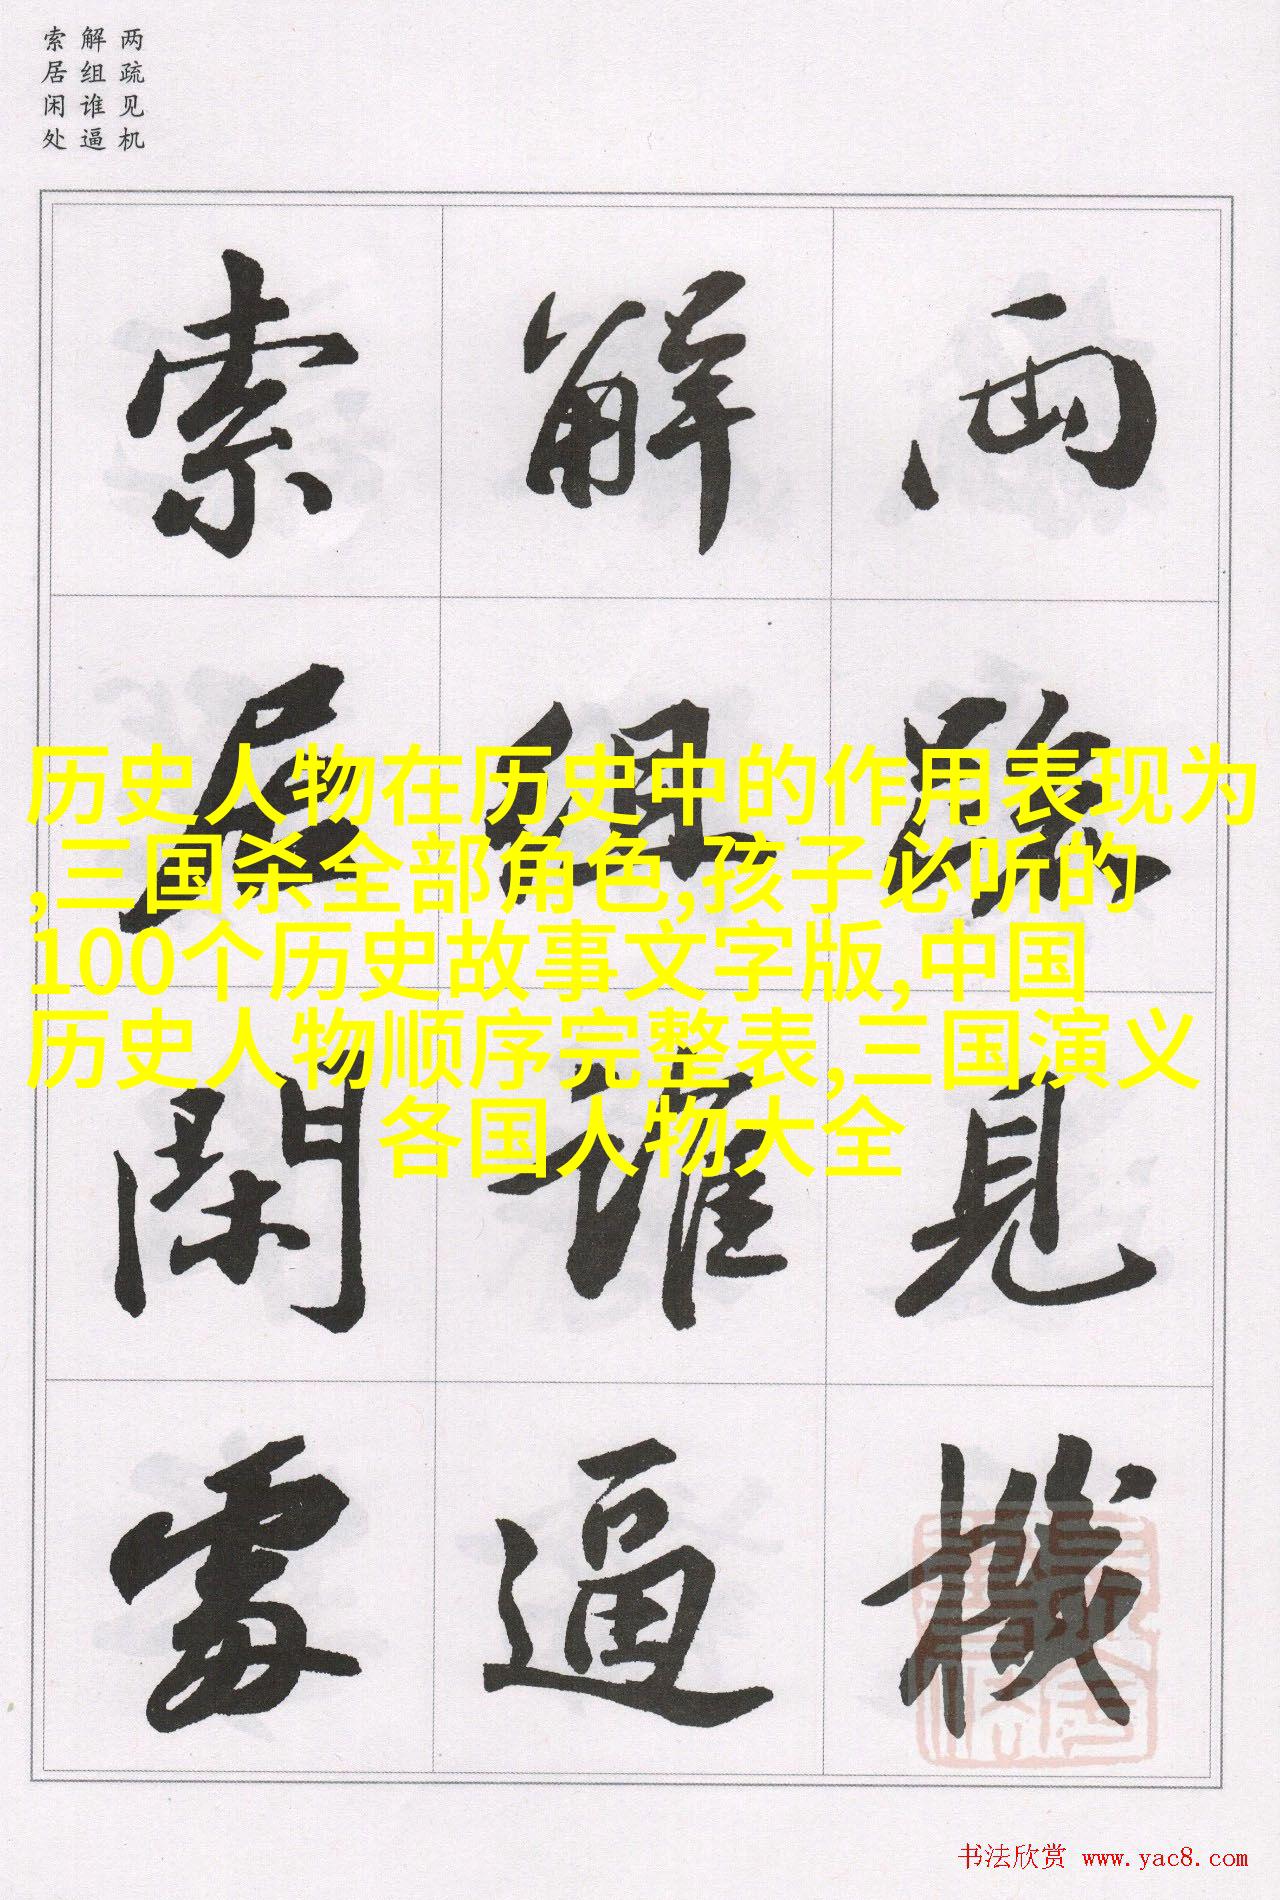 两疏见机
解组谁逼
索居闲处
两疏見機
解組誰逼
索居閑處
历史人物在历史中的作用表现为
,三国杀全部角色,孩子必听的
100个历史故事文字版,中国
历史人物顺序完整表,三国演义
各国人物大全
书法欣赏 www.yac8.com